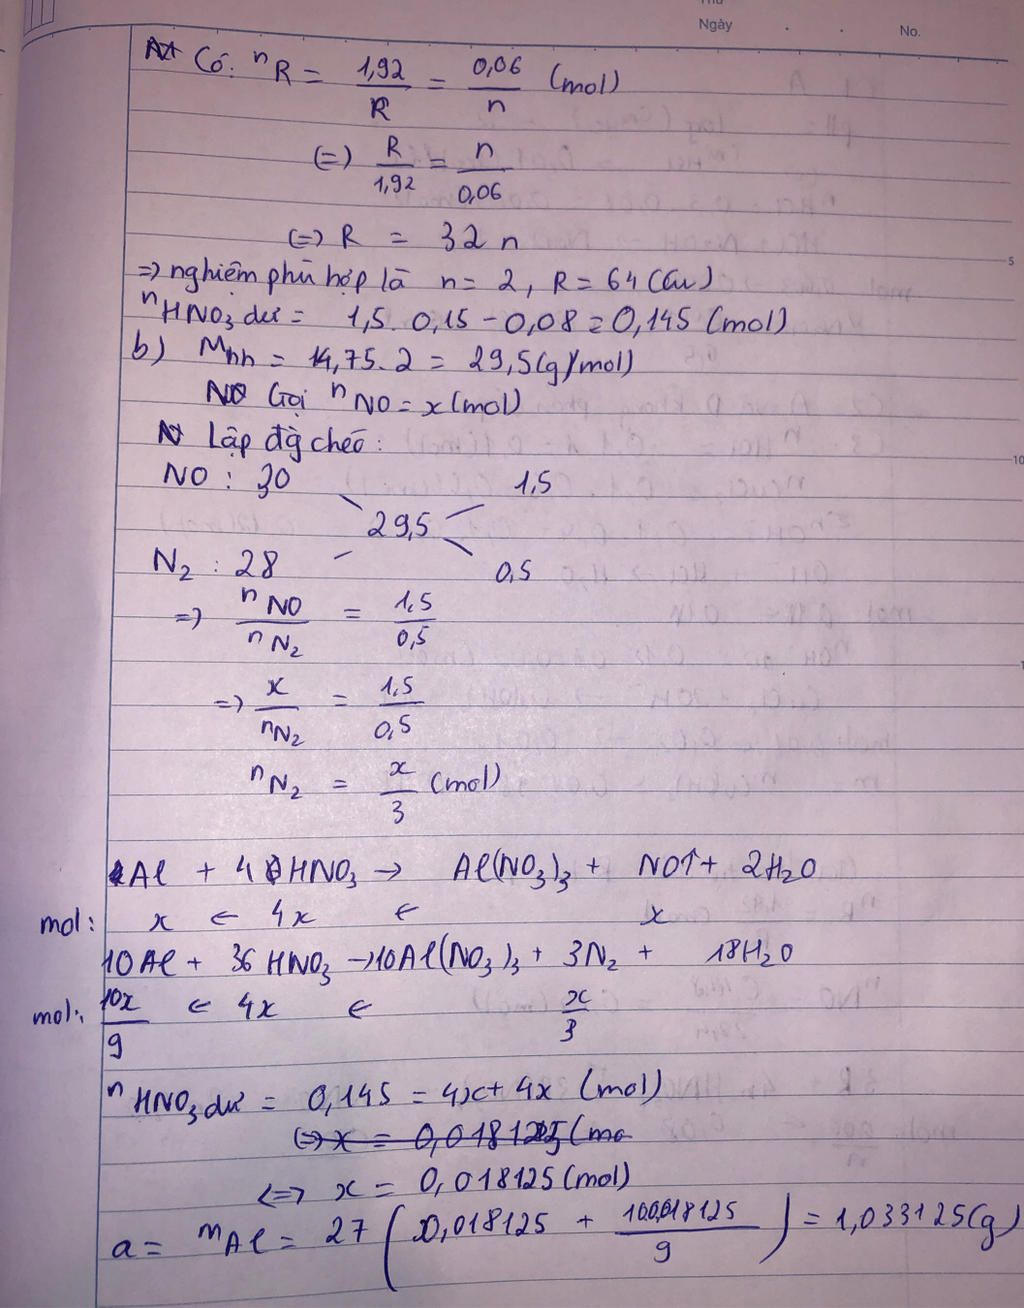 Thứ
Ngày . . No.
Có: nR = 1,92/R = 0,06/n (mol)
(=) R/1,92 = n/0,06
(=) R = 32 n
=> nghiệm phù hợp là n = 2, R = 64 (Cu)
nHNO3 dư = 1,5. 0,15 - 0,08 = 0,145 (mol)
b) Mhh = 14,75. 2 = 29,5 (g/mol)
Gọi nNO = x (mol)
Lập đg chéo:
NO : 30 1,5
29,5
N2 : 28 0,5
=> nNO/nN2 = 1,5/0,5
=> x/nN2 = 1,5/0,5
nN2 = x/3 (mol)
Al + 4HNO3 → Al(NO3)3 + NO↑ + 2H2O
mol: x ← 4x ← x
10Al + 36HNO3 → 10Al(NO3)3 + 3N2 + 18H2O
mol: 10x/9 ← 4x ← x/3
nHNO3 dư = 0,145 = 4x + 4x (mol)
(=) x = 0,018125 (mo
<=> x = 0,018125 (mol)
a = mAl = 27 (0,018125 + 10.0,018125/9) = 1,033125 (g)
5
10